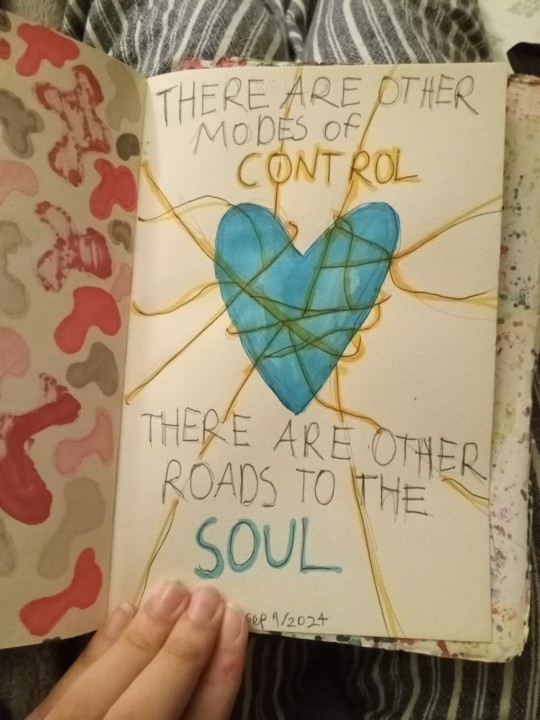 THERE ARE OTHER
MODES OF
CONTROL
THERE ARE OTHER
ROADS TO THE
SOUL
SEP 9/2024